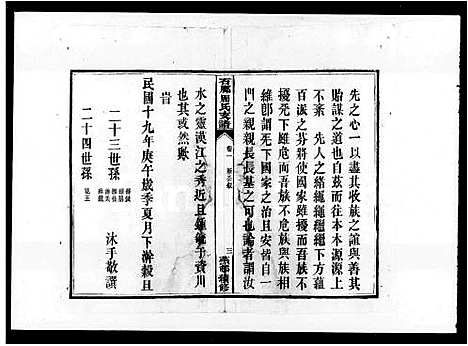 先之心一以盡其收族之誼與善其
貽謀之道也自茲而往本本源源上
不紊 先人之緒繩繩繼繼下方蘊
百派之芬將使國家雖擾而吾族不
擾死下雖危而吾族不危族與族相
維卽謂死下國家之治且安皆自一
門之親親長長基之可也論者謂汝
卷一
三
水之靈漢江之秀近且鍾毓于資川
也其或然歟
旹
民國十九年庚午歲季夏月下澣穀旦
二十三世孫
二十四世孫
沐手敬譔